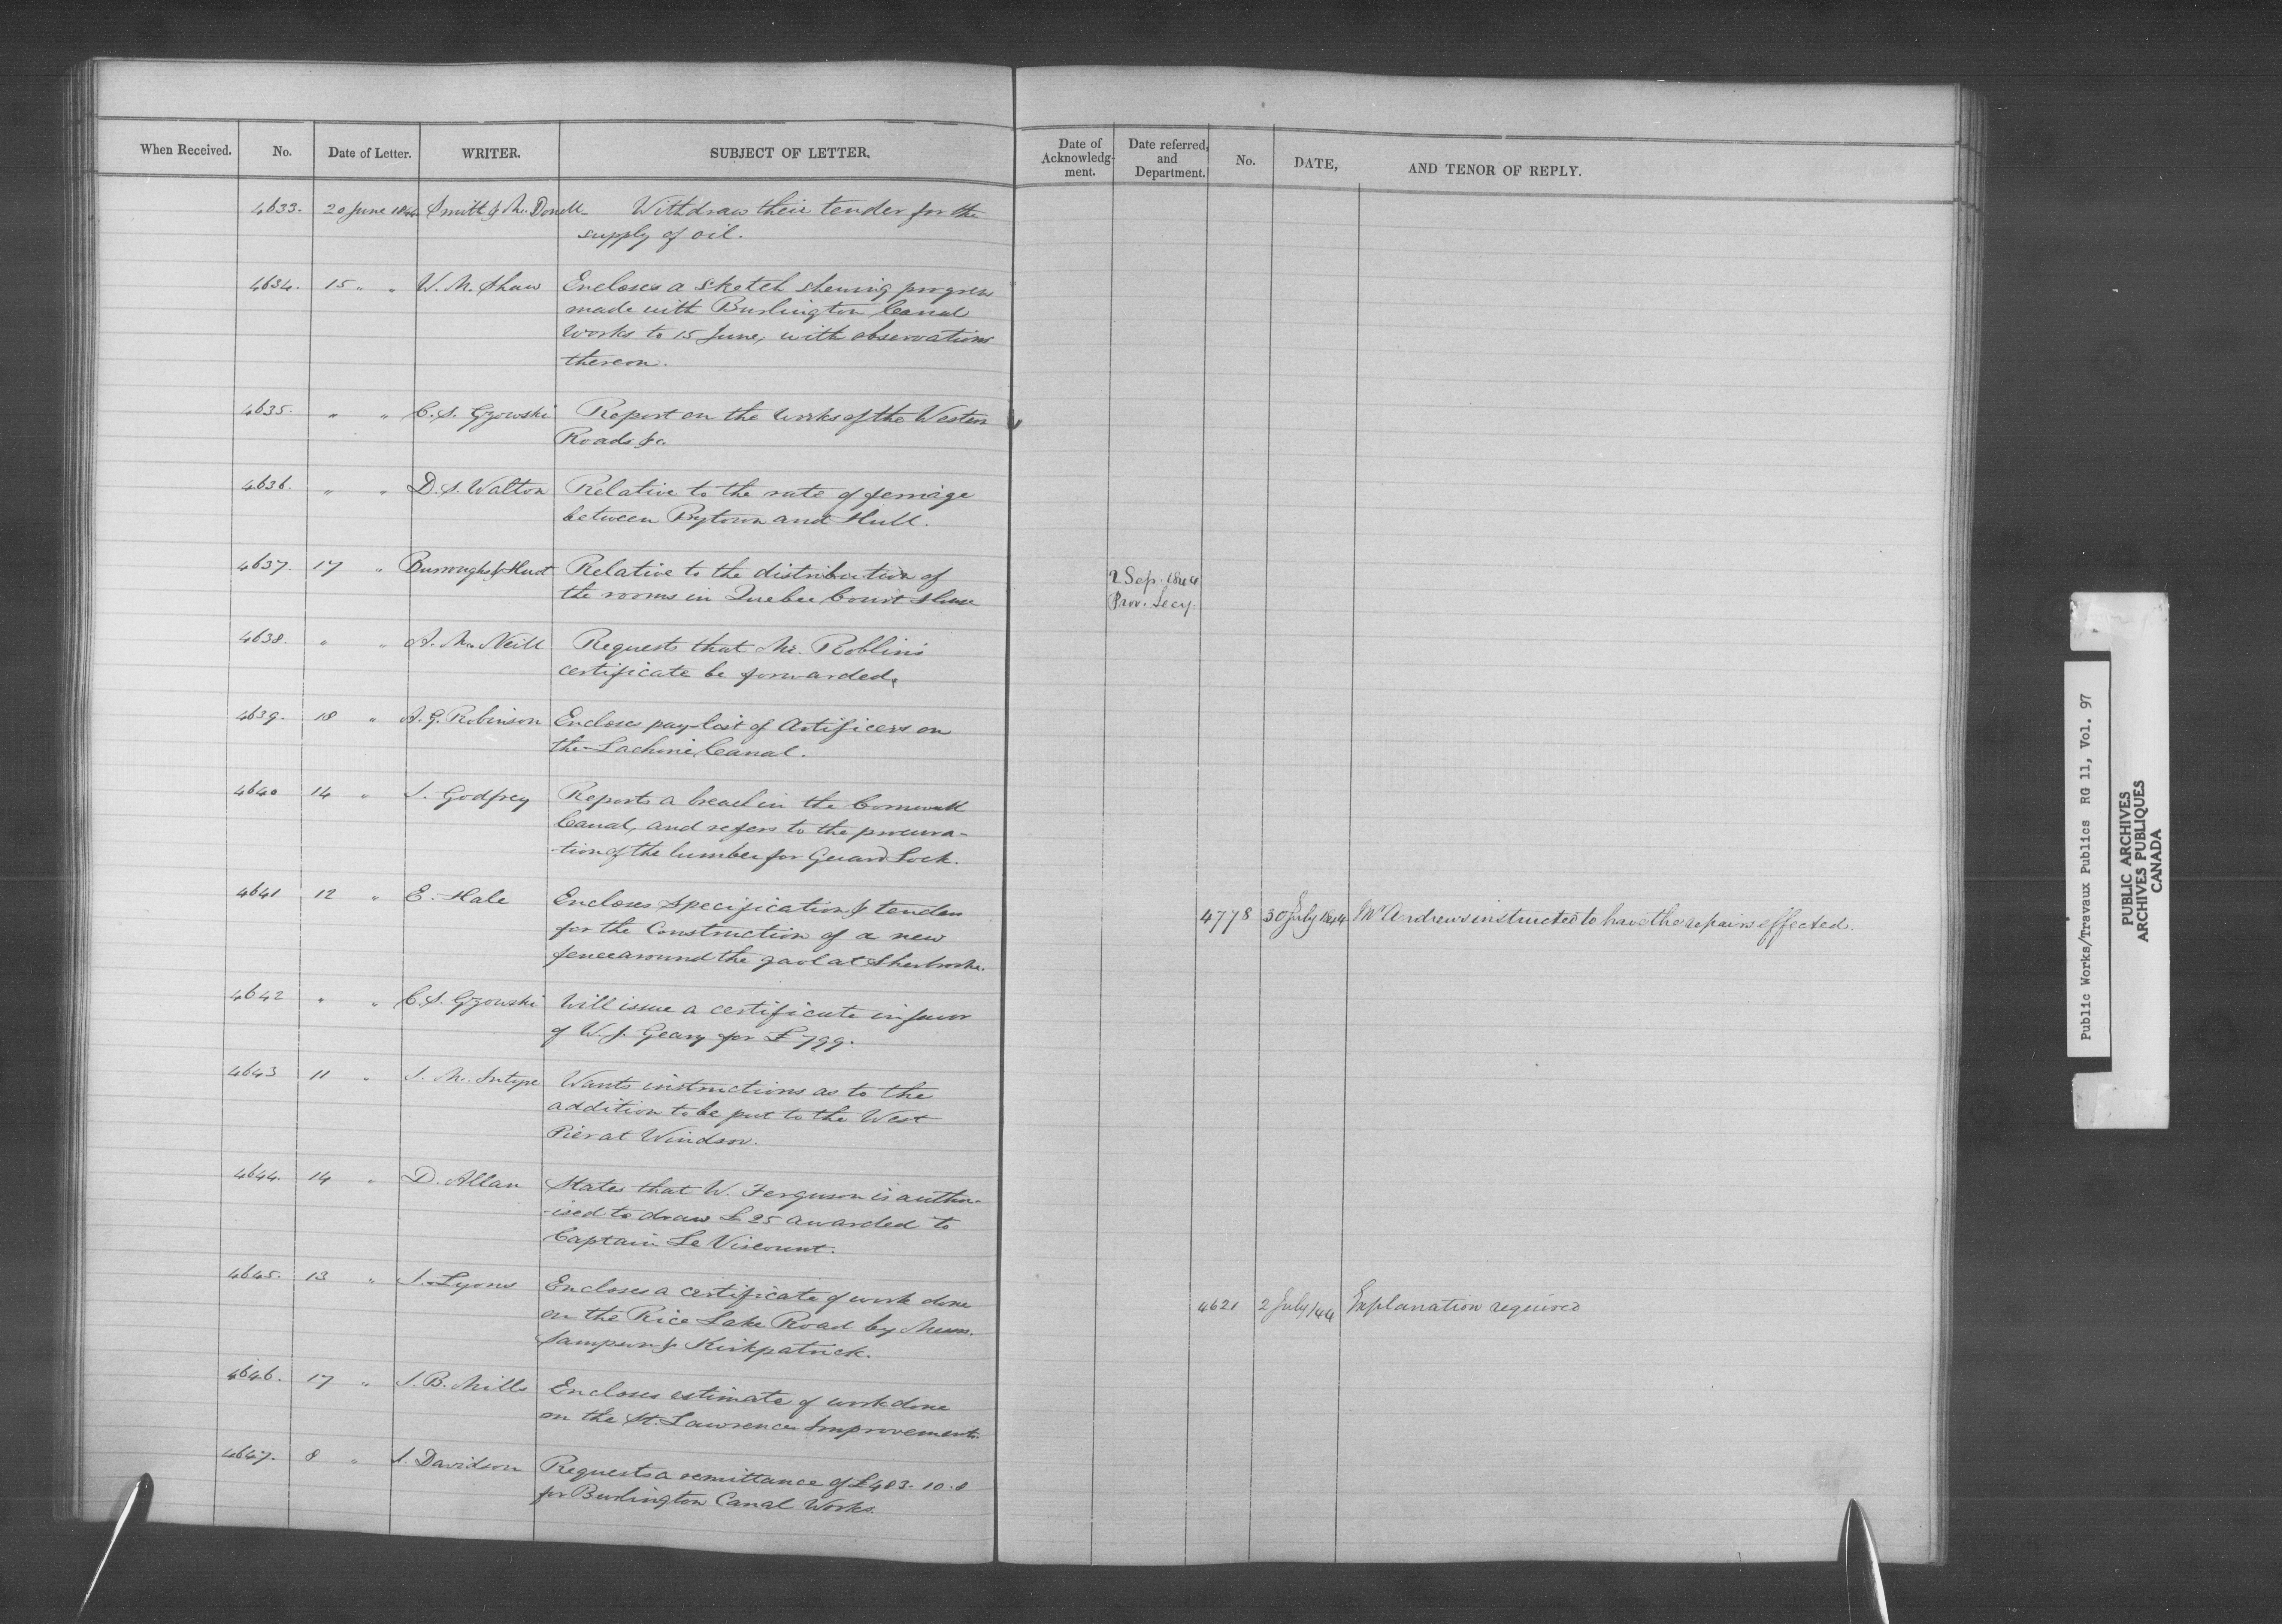 When Received. No. Date of Letter. WRITER. SUBJECT OF LETTER.
Date of Acknowledg-ment. Date referred, and Department. No. DATE, AND TENOR OF REPLY.
4633. 20 June 1844 Smith & McDonell Withdraw their tender for the
supply of oil.
4634. 15 " " W. M. Shaw Encloses a sketch shewing progress
made with Burlington Canal
Works to 15 June, with observations
thereon.
4635. " " C. S. Gzowski Report on the works of the Western
Roads &c.
4636. " " D. S. Walton Relative to the rate of ferriage
between Bytown and Hull.
4637. 17 " Burroughs & Huot Relative to the distribution of
the rooms in Quebec Court House
2 Sep. 1844
Prov. Secy.
4638. " " A. McNeill Requests that Mr. Roblin's
certificate be forwarded.
4639. 18 " A. G. Robinson Encloses pay-list of Artificers on
the Lachine Canal.
4640 14 " J. Godfrey Reports a breach in the Cornwall
Canal, and refers to the procura-
-tion of the lumber for Guard Lock.
4641 12 " E. Hale Encloses Specification & tenders
for the Construction of a new
fence around the gaol at Sherbrooke.
4778 30 July 1844 Mr Andrews instructed to have the repairs effected.
4642 " " C. S. Gzowski Will issue a certificate in favor
of W. J. Geary for £799.
4643 11 " J. McIntyre Wants instructions as to the
addition to be put to the West
Pier at Windsor.
4644. 14 " D. Allan States that W. Ferguson is author-
-ised to draw £25 awarded to
Captain Le Viscount.
4645. 13 " J. Lyons Encloses a certificate of work done
on the Rice Lake Road by Messrs.
Sampson & Kirkpatrick.
4621 2 July /44 Explanation required
4646. 17 " J. B. Mills Encloses estimate of work done
on the St. Lawrence Improvements.
4647. 8 " J. Davidson Requests a remittance of £483. 10. 8
for Burlington Canal Works.
Public Works/Travaux Publics RG 11, Vol. 97
PUBLIC ARCHIVES
ARCHIVES PUBLIQUES
CANADA